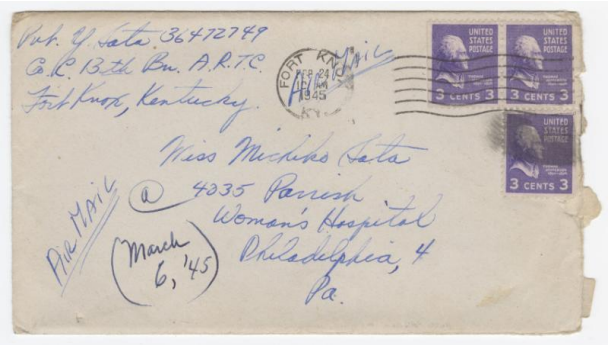 Pvt. Y. Sata 36472749
Co. C. 13th Bn. A.R.T.C.
Fort Knox, Kentucky.
Air Mail
FORT KNOX
1945
KY.
UNITED STATES POSTAGE
3 CENTS 3
UNITED STATES POSTAGE
3 CENTS 3
UNITED STATES POSTAGE
3 CENTS 3
Miss Michiko Sata
@ 4235 Parrish
Woman's Hospital
Philadelphia, 4
Pa.
Air Mail
(March
6, '45)